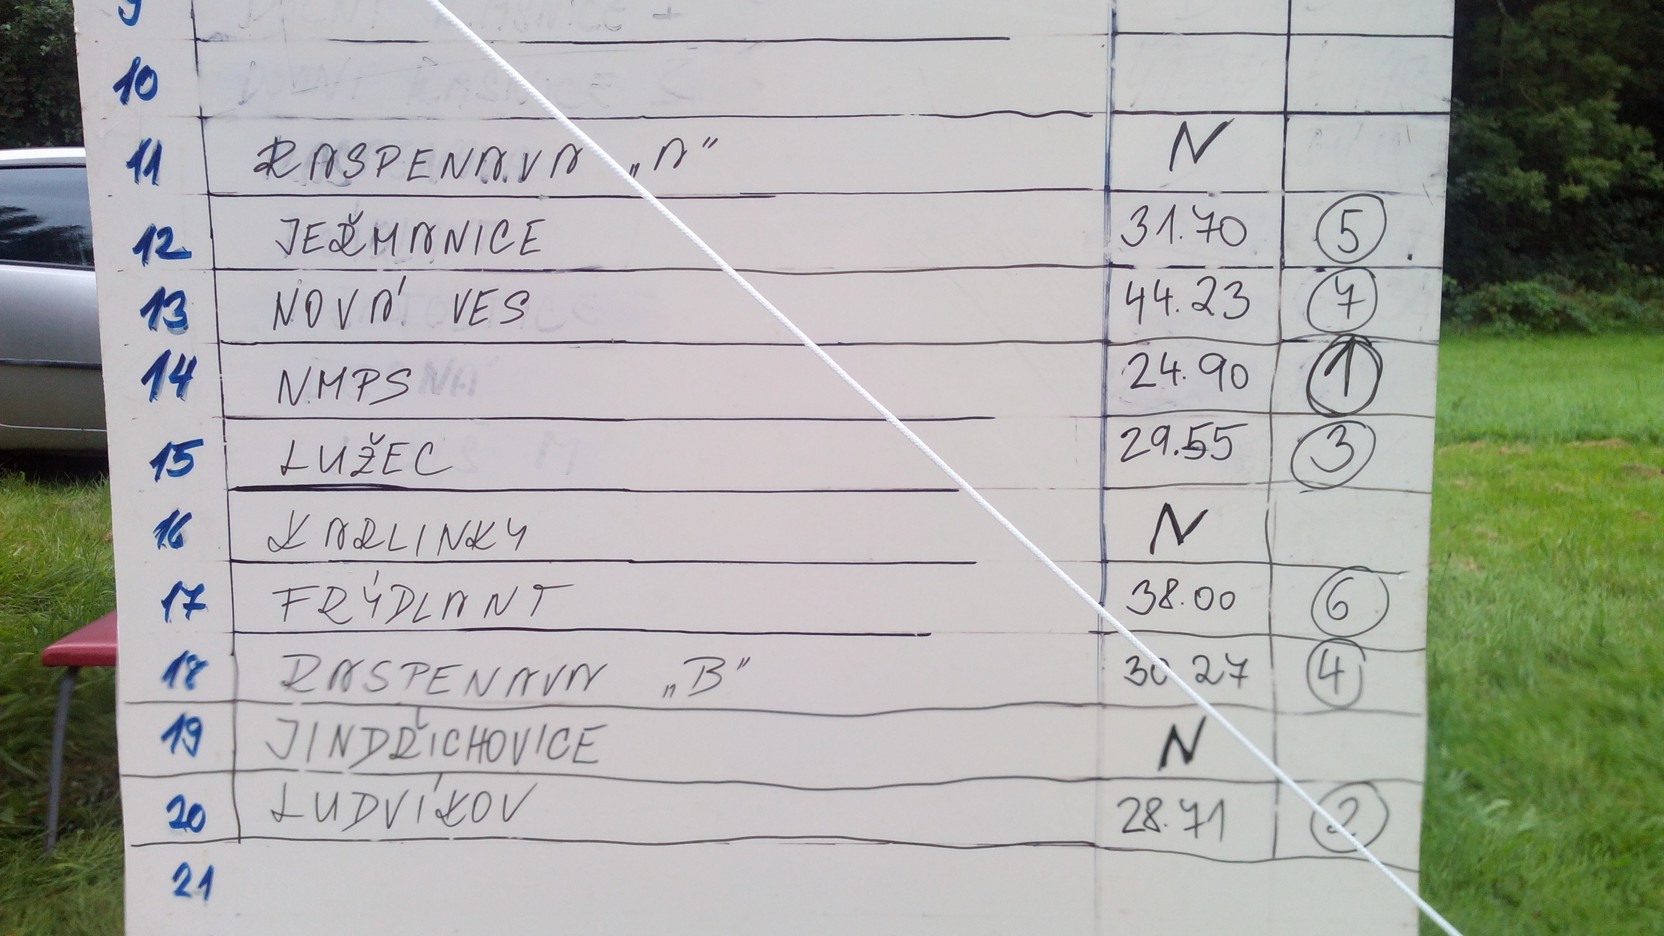 9
10
11 RASPENAVA „A" N
12 JEŽMANICE 31.70 5
13 NOVÁ VES 44.23 7
14 NMPS 24.90 1
15 LUŽEC 29.55 3
16 KARLINKY N
17 FRÝDLANT 38.00 6
18 RASPENAVA „B" 30.27 4
19 JINDŘICHOVICE N
20 LUDVÍKOV 28.71 2
21